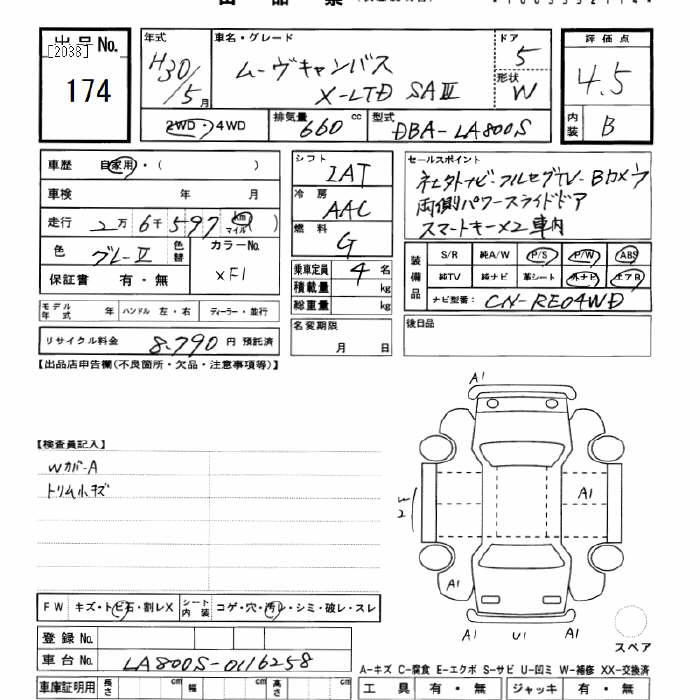 出品No.
[2038]
174
年式
H30/5月
車名・グレード
ムーヴキャンバス
X-LTD SAⅢ
ドア
5
形状
W
評価点
4.5
内装
B
2WD・4WD
排気量 660 cc
型式 DBA-LA800S
車歴 自家用・( )
車検 年 月
走行 2万6千597 km マイル ( )
色 グレーⅡ 色替
カラーNo.
XF1
保証書 有・無
モデル年式 年 ハンドル 左・右 ディーラー・並行
リサイクル料金 8,790 円 預託済
シフト
IAT
冷房
AAC
燃料
G
乗車定員 4 名
積載量 kg
総重量 kg
名変期限
月 日
セールスポイント
ネエ外ナビ・フルセグTV・Bカメラ
両側パワースライドドア
スマートキー×2車内
装備品
S/R 純A/W P/S P/W ABS
純TV 純ナビ 革シート 外ナビ エアB
ナビ型番: CN-RE04WD
後日品
【出品店申告欄(不良箇所・欠品・注意事項等)】
【検査員記入】
Wカバ-A
トリム小キズ
A1
A1
W2
A1
A1 U1 A1
スペア
FW キズ・トビ石・割レX シート内装 コゲ・穴・汚レ・シミ・破レ・スレ
登録No.
車台No. LA800S-0116258
A-キズ C-腐食 E-エクボ S-サビ U-凹ミ W-補修 XX-交換済
車庫証明用 長さ cm 幅 cm 高さ cm
工具 有・無 ジャッキ 有・無